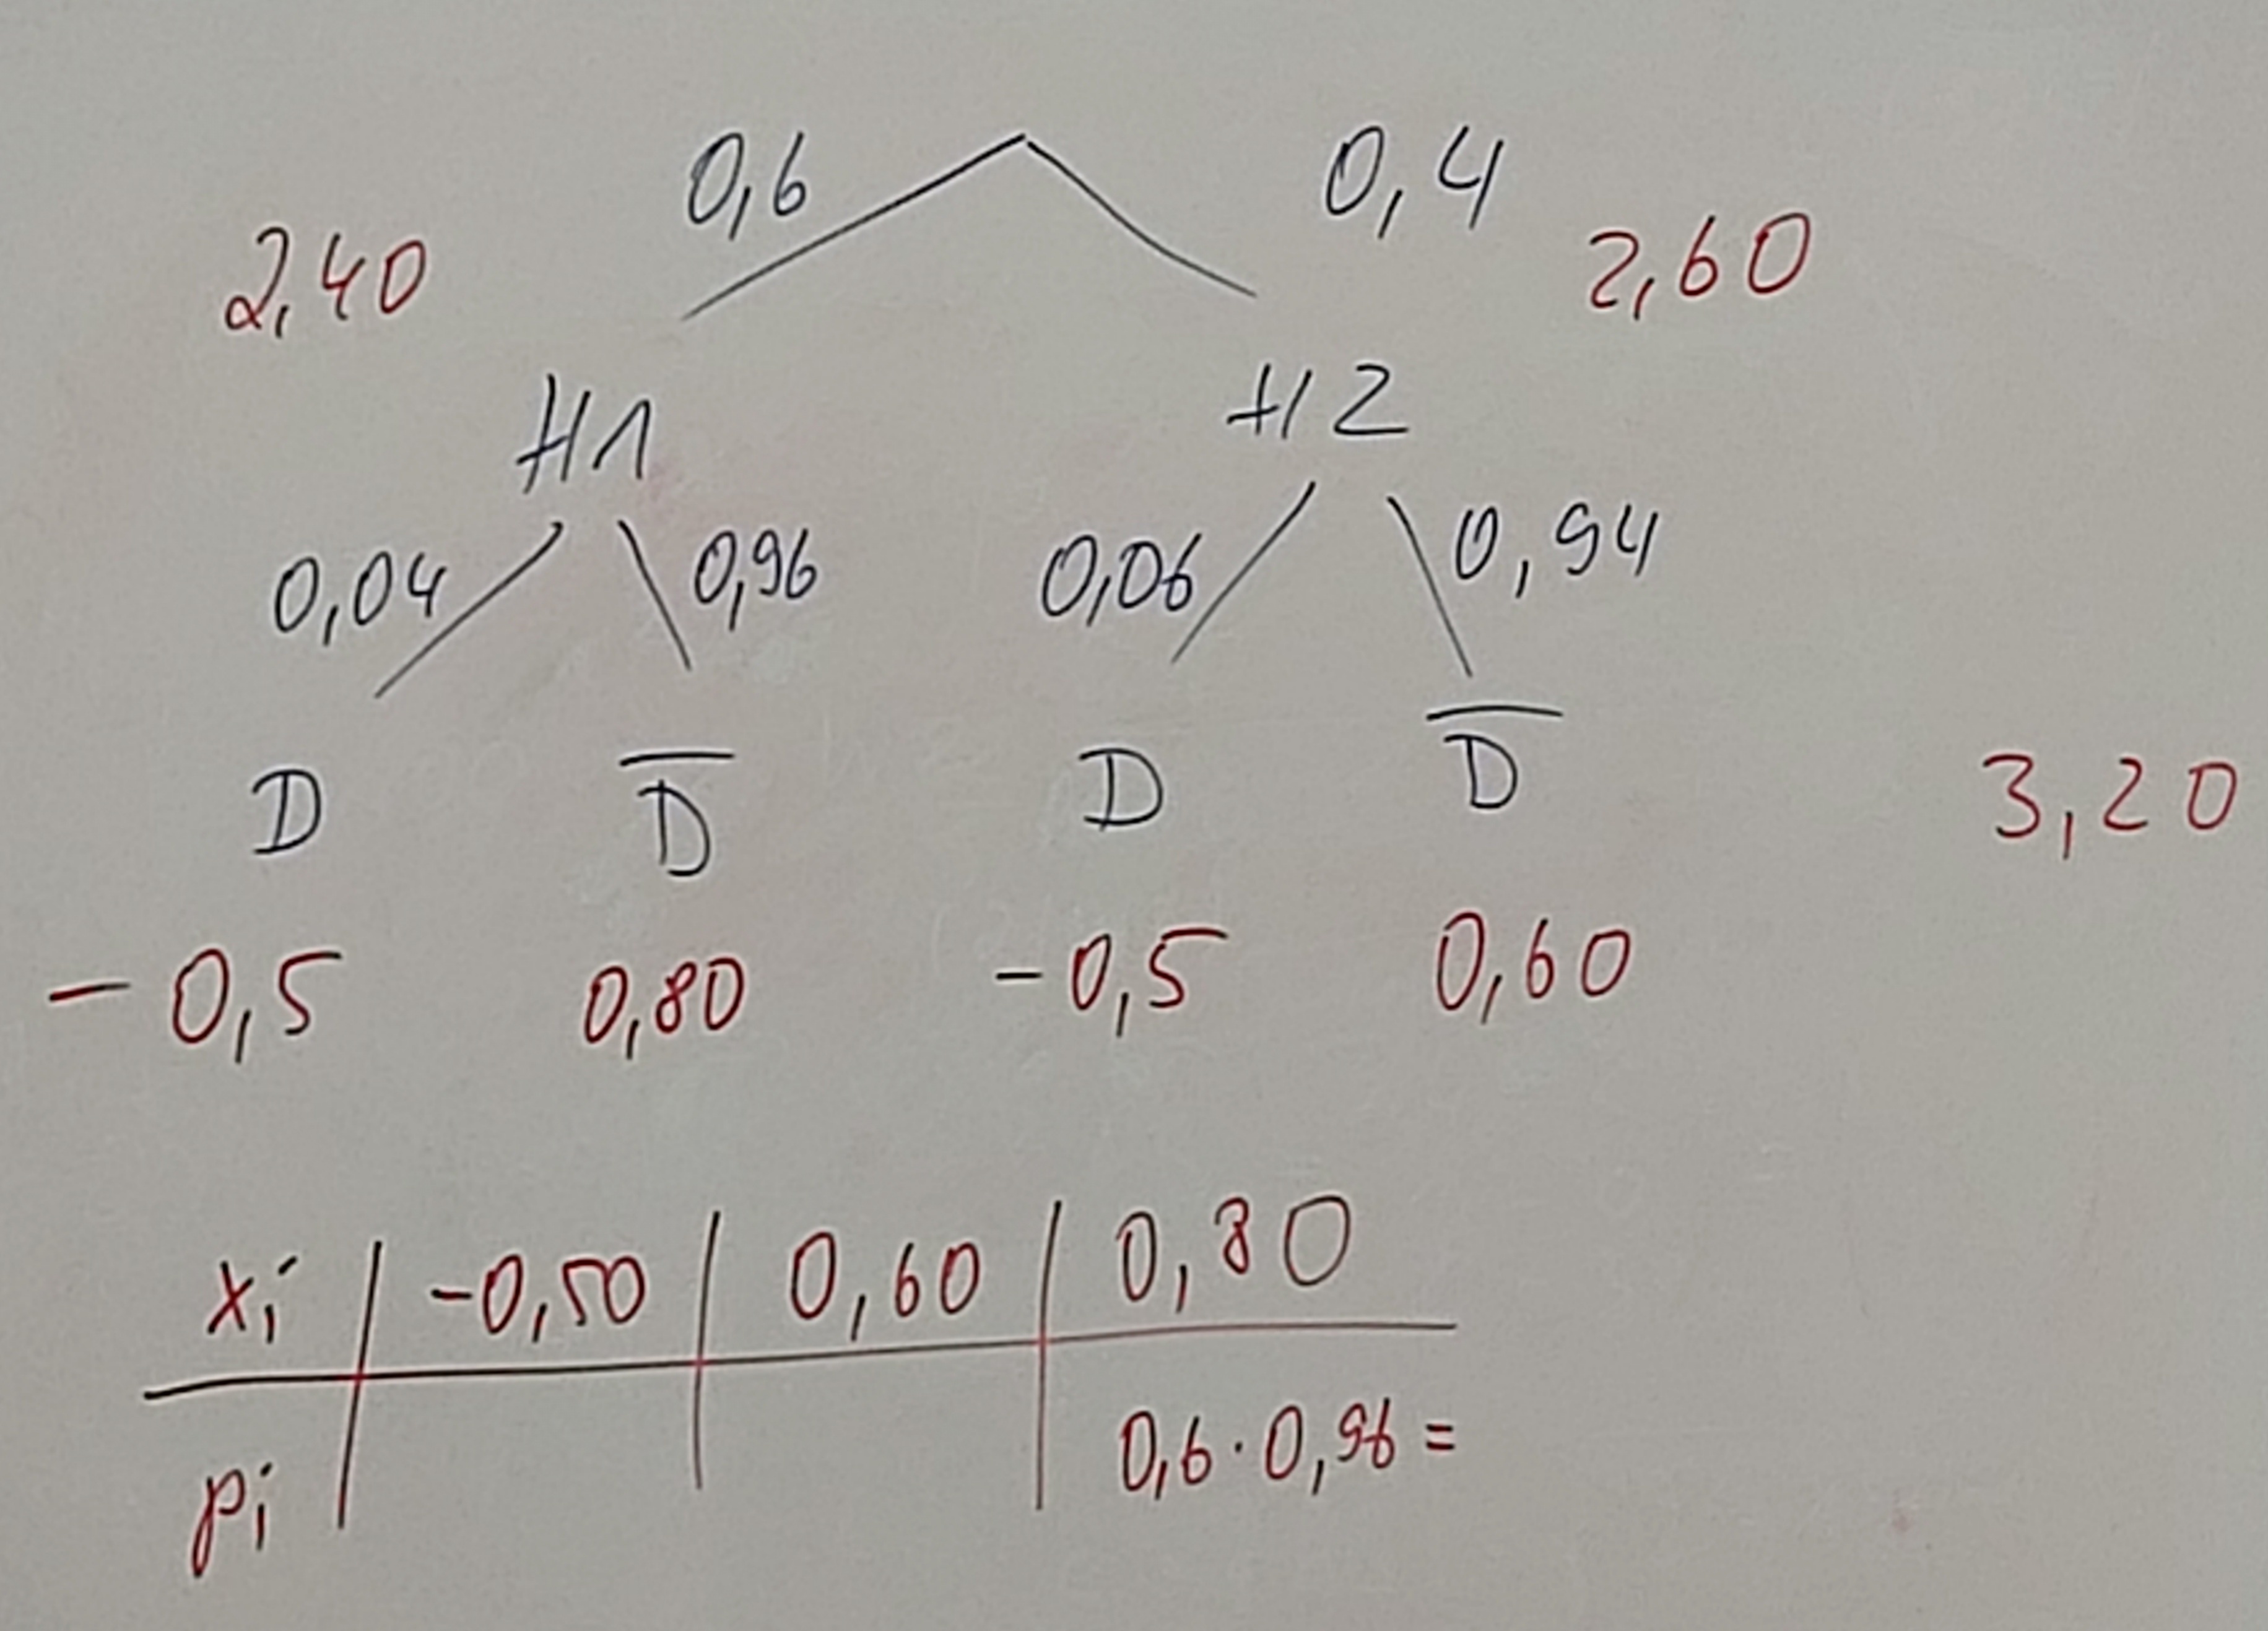 0,6 0,4
2,40 2,60
H1 H2
0,04 0,96 0,06 0,94
D D̅ D D̅ 3,20
-0,5 0,80 -0,5 0,60
xi -0,50 0,60 0,80
pi 0,6·0,96=